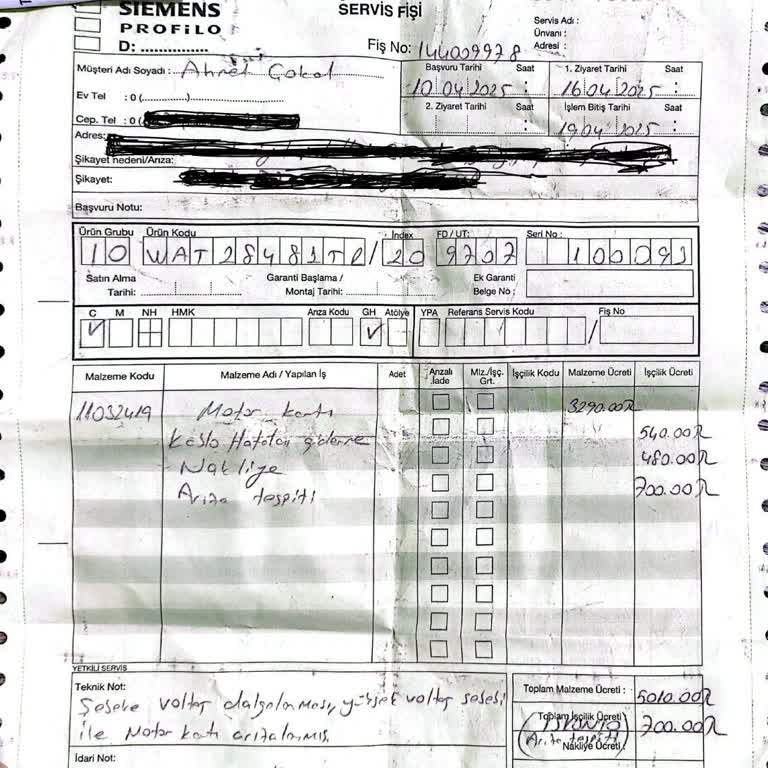 SIEMENS
PROFiLO
D: ...............
SERVİS FİŞİ
Fiş No: 144009978
Servis Adı :
Ünvanı :
Adresi :
Müşteri Adı Soyadı : Ahmet Çokal
Başvuru Tarihi Saat
10 04 2025 :
1. Ziyaret Tarihi Saat
16 04 2025 :
Ev Tel : 0 (............)
2. Ziyaret Tarihi Saat
:
İşlem Bitiş Tarihi Saat
19 04 2025 :
Cep. Tel : 0 (
Adres:
Şikayet nedeni/Arıza:
Şikayet:
Başvuru Notu:
Ürün Grubu Ürün Kodu Index FD / UT: Seri No :
10 WAT28481TR / 20 9707 100093
Satın Alma Tarihi:
Garanti Başlama / Montaj Tarihi:
Ek Garanti Belge No :
C M NH HMK Arıza Kodu GH Atölye YPA Referans Servis Kodu Fiş No
✓ ✓ /
Malzeme Kodu Malzeme Adı / Yapılan İş Adet Arızalı İade Mlz./İşç. Grt. İşçilik Kodu Malzeme Ücreti İşçilik Ücreti
11032419 Motor kartı 3290.00TL
Hatatan giderme 540.00TL
Nakliye 480.00TL
Arıza tespiti 700.00TL
YETKİLİ SERVİS
Teknik Not:
Şebeke voltaj dalgalanması, yüksek voltaj sebebi
ile Motor kartı arızalanmış.
Toplam Malzeme Ücreti : 5010.00TL
Toplam İşçilik Ücreti 700.00TL
(Arıza tespiti)
Nakliye Ücreti
İdari Not: